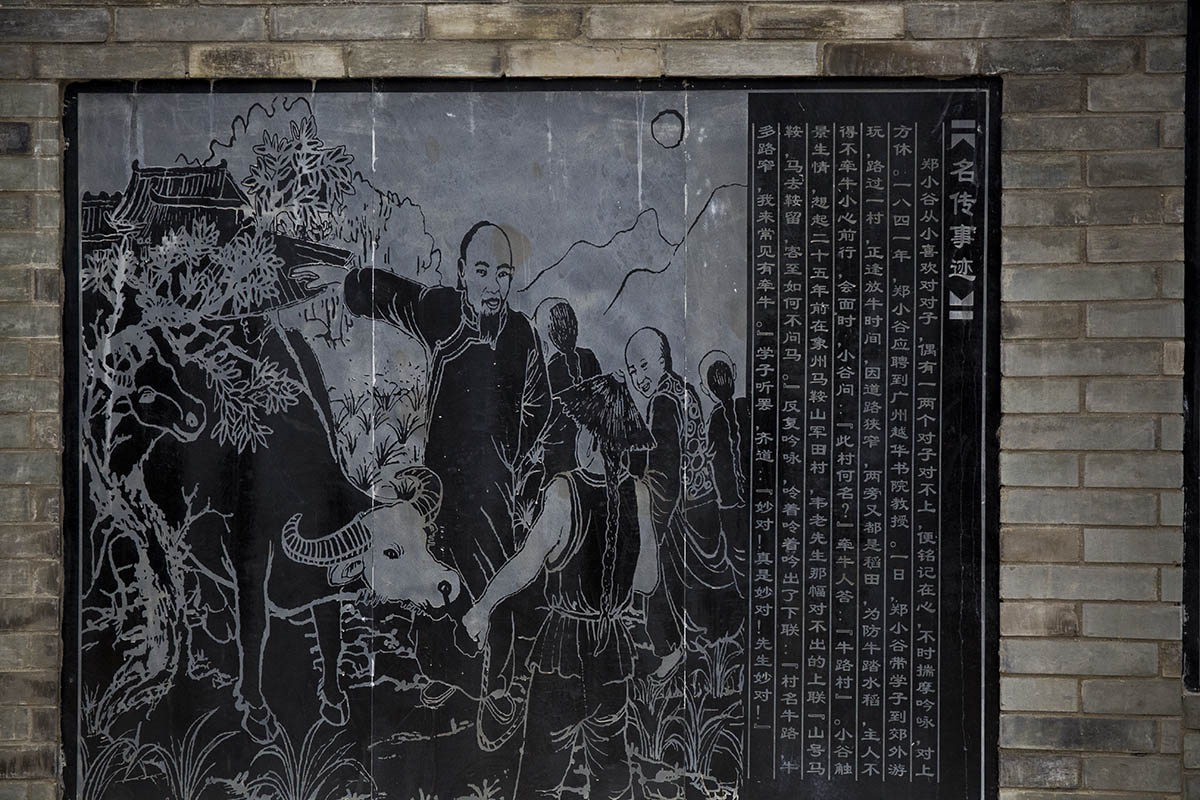 【名传事迹】
郑小谷从小喜欢对对子,偶有一两个对子对不上,便铭记在心,不时揣摩吟咏,对上
方休。一八四一年,郑小谷应聘到广州越华书院教授。一日,郑小谷带学子到郊外游
玩,路过一村,正逢放牛时间,因道路狭窄,两旁又都是稻田,为防牛踏水稻,主人不
得不牵牛小心前行,会面时,小谷问:『此村何名?』牵牛人答:『牛路村』。小谷触
景生情,想起二十五年前在象州马鞍山军田村,韦老先生那幅对不出的上联『山号马
鞍,马去鞍留,客至如何不问马。』反复吟咏,吟着吟着吟出了下联:『村名牛路,牛
多路窄,我来常见有牵牛。』学子听罢,齐道:『妙对!真是妙对!先生妙对!』